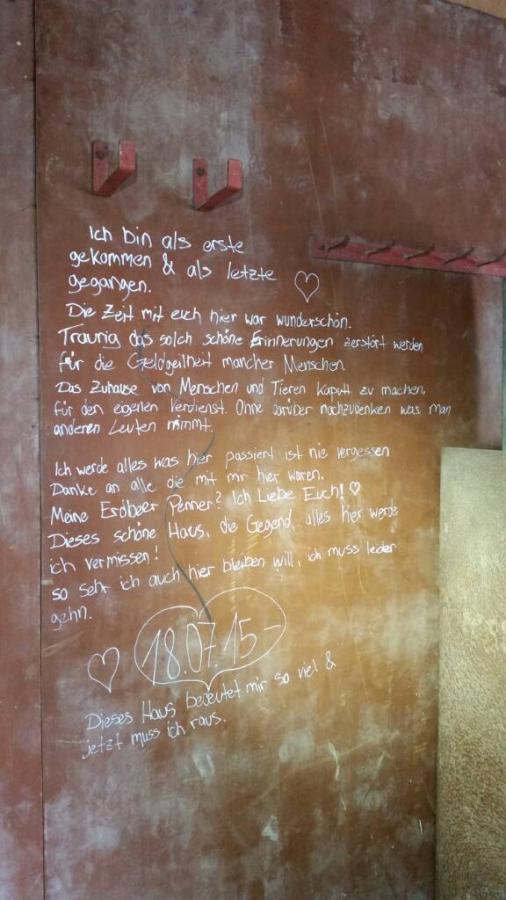 Ich bin als erste
gekommen & als letzte
gegangen. ♡
Die Zeit mit euch hier war wunderschön.
Traurig das solch schöne Erinnerungen zerstört werden
für die Geldgeilheit mancher Menschen
Das Zuhause von Menschen und Tieren kaputt zu machen,
für den eigenen Verdienst. Ohne darüber nachzudenken was man
anderen Leuten nimmt.
Ich werde alles was hier passiert ist nie vergessen
Danke an alle die mit mir hier waren.
Meine Erdbeer Penner? Ich Liebe Euch! ♡
Dieses schöne Haus, die Gegend, alles hier werde
ich vermissen!
so sehr ich auch hier bleiben will, ich muss leider
gehn.
♡ 18.07.15 –
Dieses Haus bedeutet mir so viel &
jetzt muss ich raus.